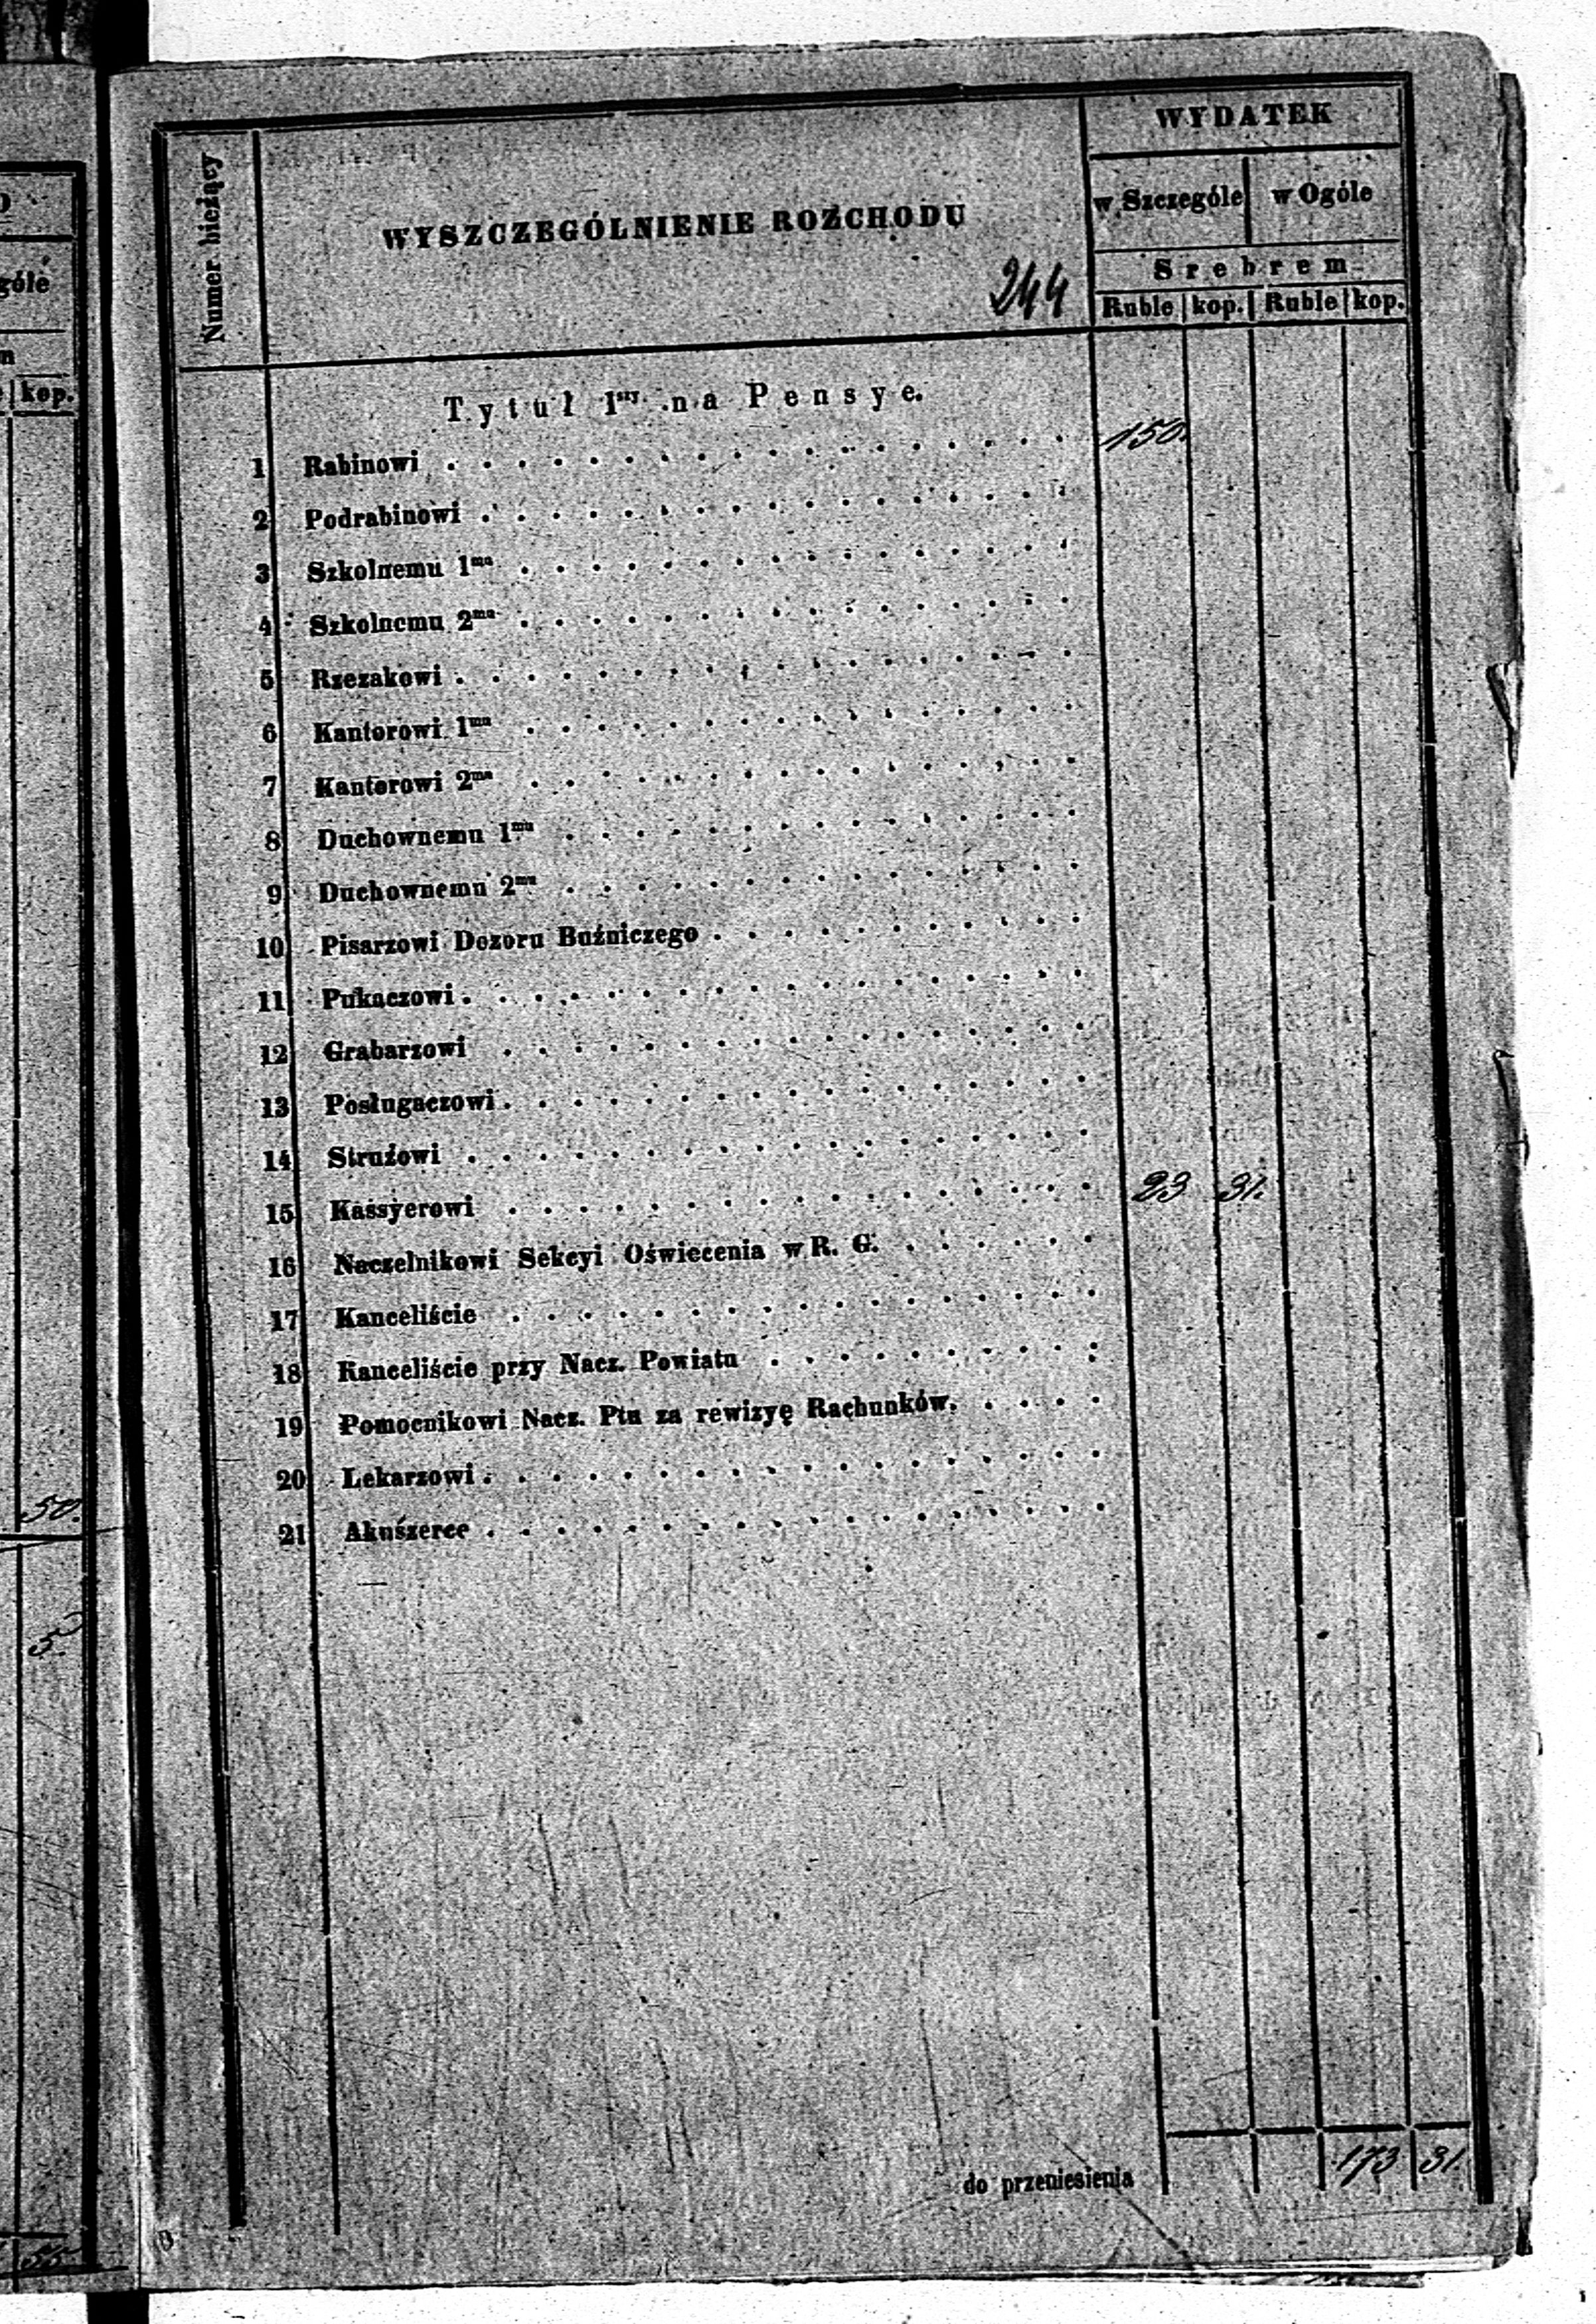 WYDATEK
Numer bieżący
WYSZCZEGÓLNIENIE ROZCHODU
w Szczególe w Ogóle
Srebrem
244
Ruble kop. Ruble kop.
góle
kop.
Tytuł 1szy na Pensye.
1 Rabinowi 150.
2 Podrabinowi
3 Szkolnemu 1mu
4 Szkolnemu 2mu
5 Rzezakowi
6 Kantorowi 1mu
7 Kantorowi 2mu
8 Duchownemu 1mu
9 Duchownemu 2mu
10 Pisarzowi Dozoru Buźniczego
11 Pukaczowi
12 Grabarzowi
13 Posługaczowi
14 Strużowi
15 Kassyerowi 23 31.
16 Naczelnikowi Sekcyi Oświecenia w R. G.
17 Kanceliście
18 Kanceliście przy Nacz. Powiatu
19 Pomocnikowi Nacz. Ptu za rewizyę Rachunków.
20 Lekarzowi
21 Akuszerce
50.
5.
do przeniesienia 173 31.
55